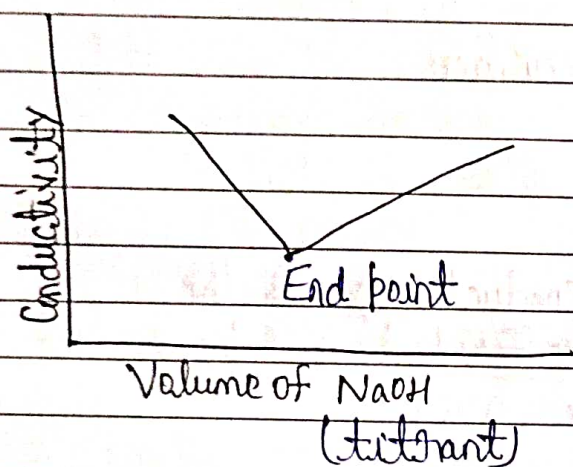 Conductivity
End point
Volume of NaOH
(titrant)